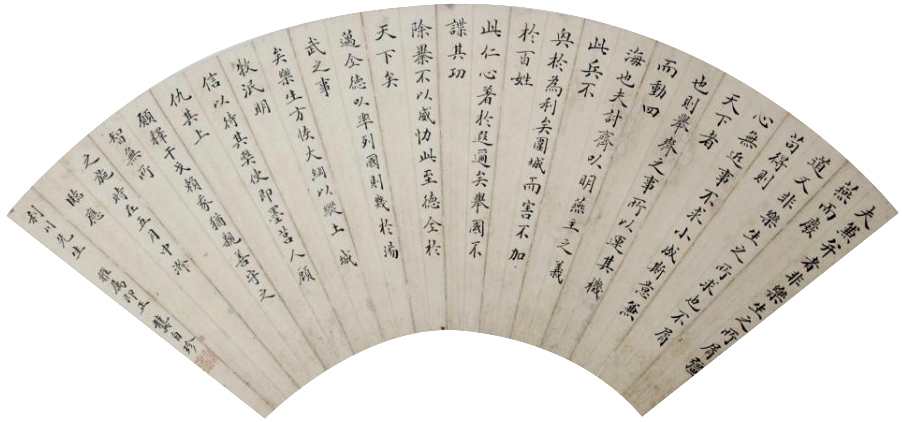 夫兼弁者非樂生之所屑彊
燕而廢
道又非樂生之所求也不屑
苟得則
心無近事不求小成斯意兼
天下者
也則舉齊之事所以運其機
而動四
海也夫討齊以明燕主之義
此兵不
興於為利矣圍城而害不加
於百姓
此仁心著於遐邇矣舉國不
謀其功
除暴不以威力此至德全於
天下矣
邁全德以率列國則幾於湯
武之事
矣樂生方恢大綱以縱二城
牧民明
信以待其弊使即墨莒人顧
仇其上
願釋干戈賴我猶親善守之
智無所
之施時在五月中澣
臨應
利川先生 雅屬即正 龔自珍